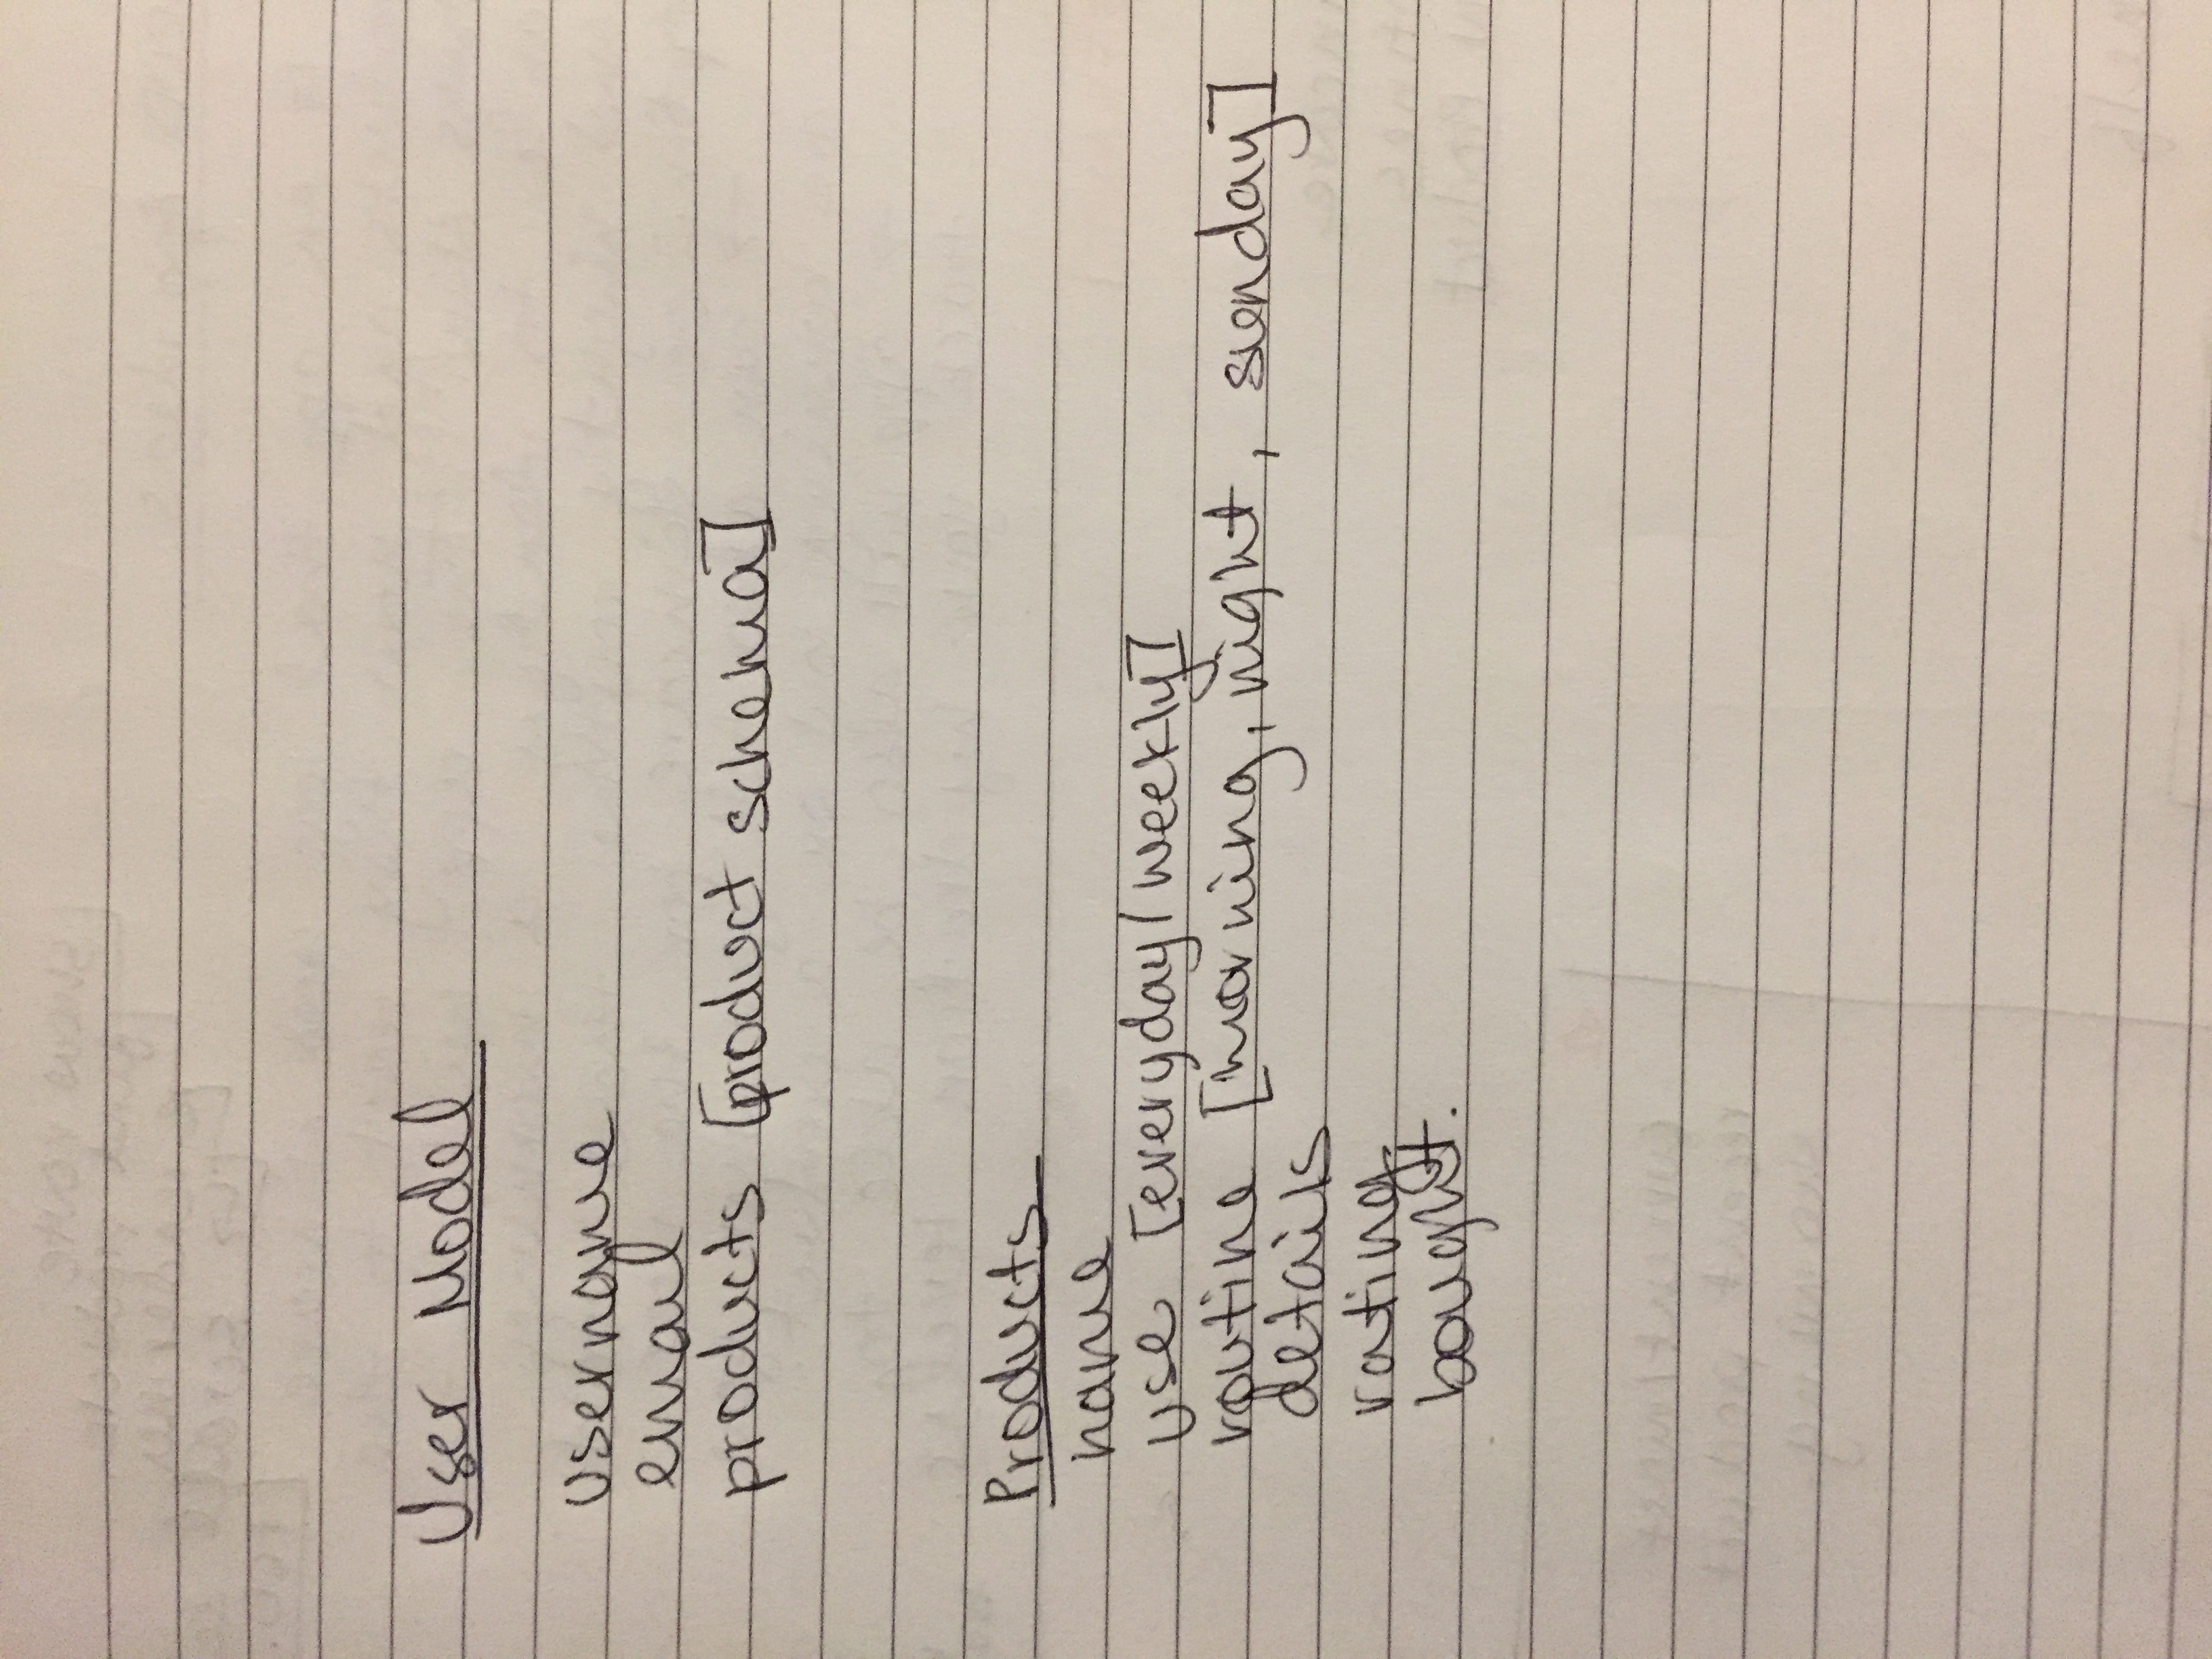 User Model
username
email
products [product schema]
Products
name
use [everyday/weekly]
routine [morning, night, sunday]
details
rating
bought.